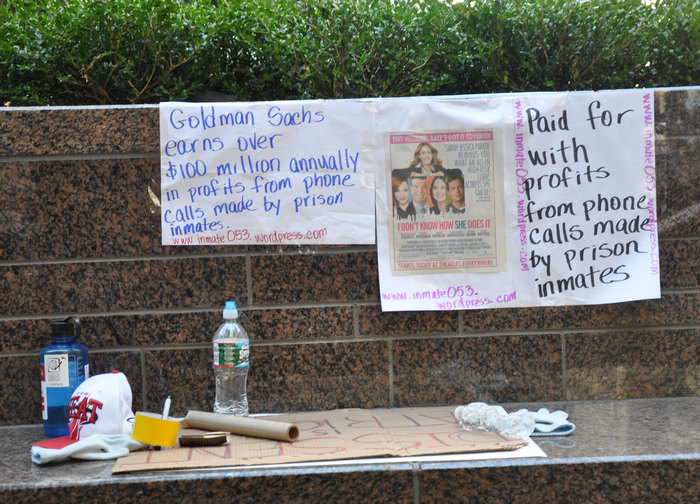 Goldman Sachs
earns over
$100 million annually
in profits from phone
calls made by prison
inmates.
www.inmate053.wordpress.com
THIS WEEKEND, KATE'S GOT IT COVERED!
"SARAH JESSICA PARKER
REMINDS YOU
WHAT AN ALL-IN
HIGH-RISK
COMIC
ACTRESS SHE
CAN BE."
I DON'T KNOW HOW SHE DOES IT
STARTS TODAY AT THEATERS EVERYWHERE
www.inmate053.
wordpress.com
www.inmate053.wordpress.com
Paid for
with
profits
from phone
calls made
by prison
inmates
www.inmate053.wordpress.com
HEAT